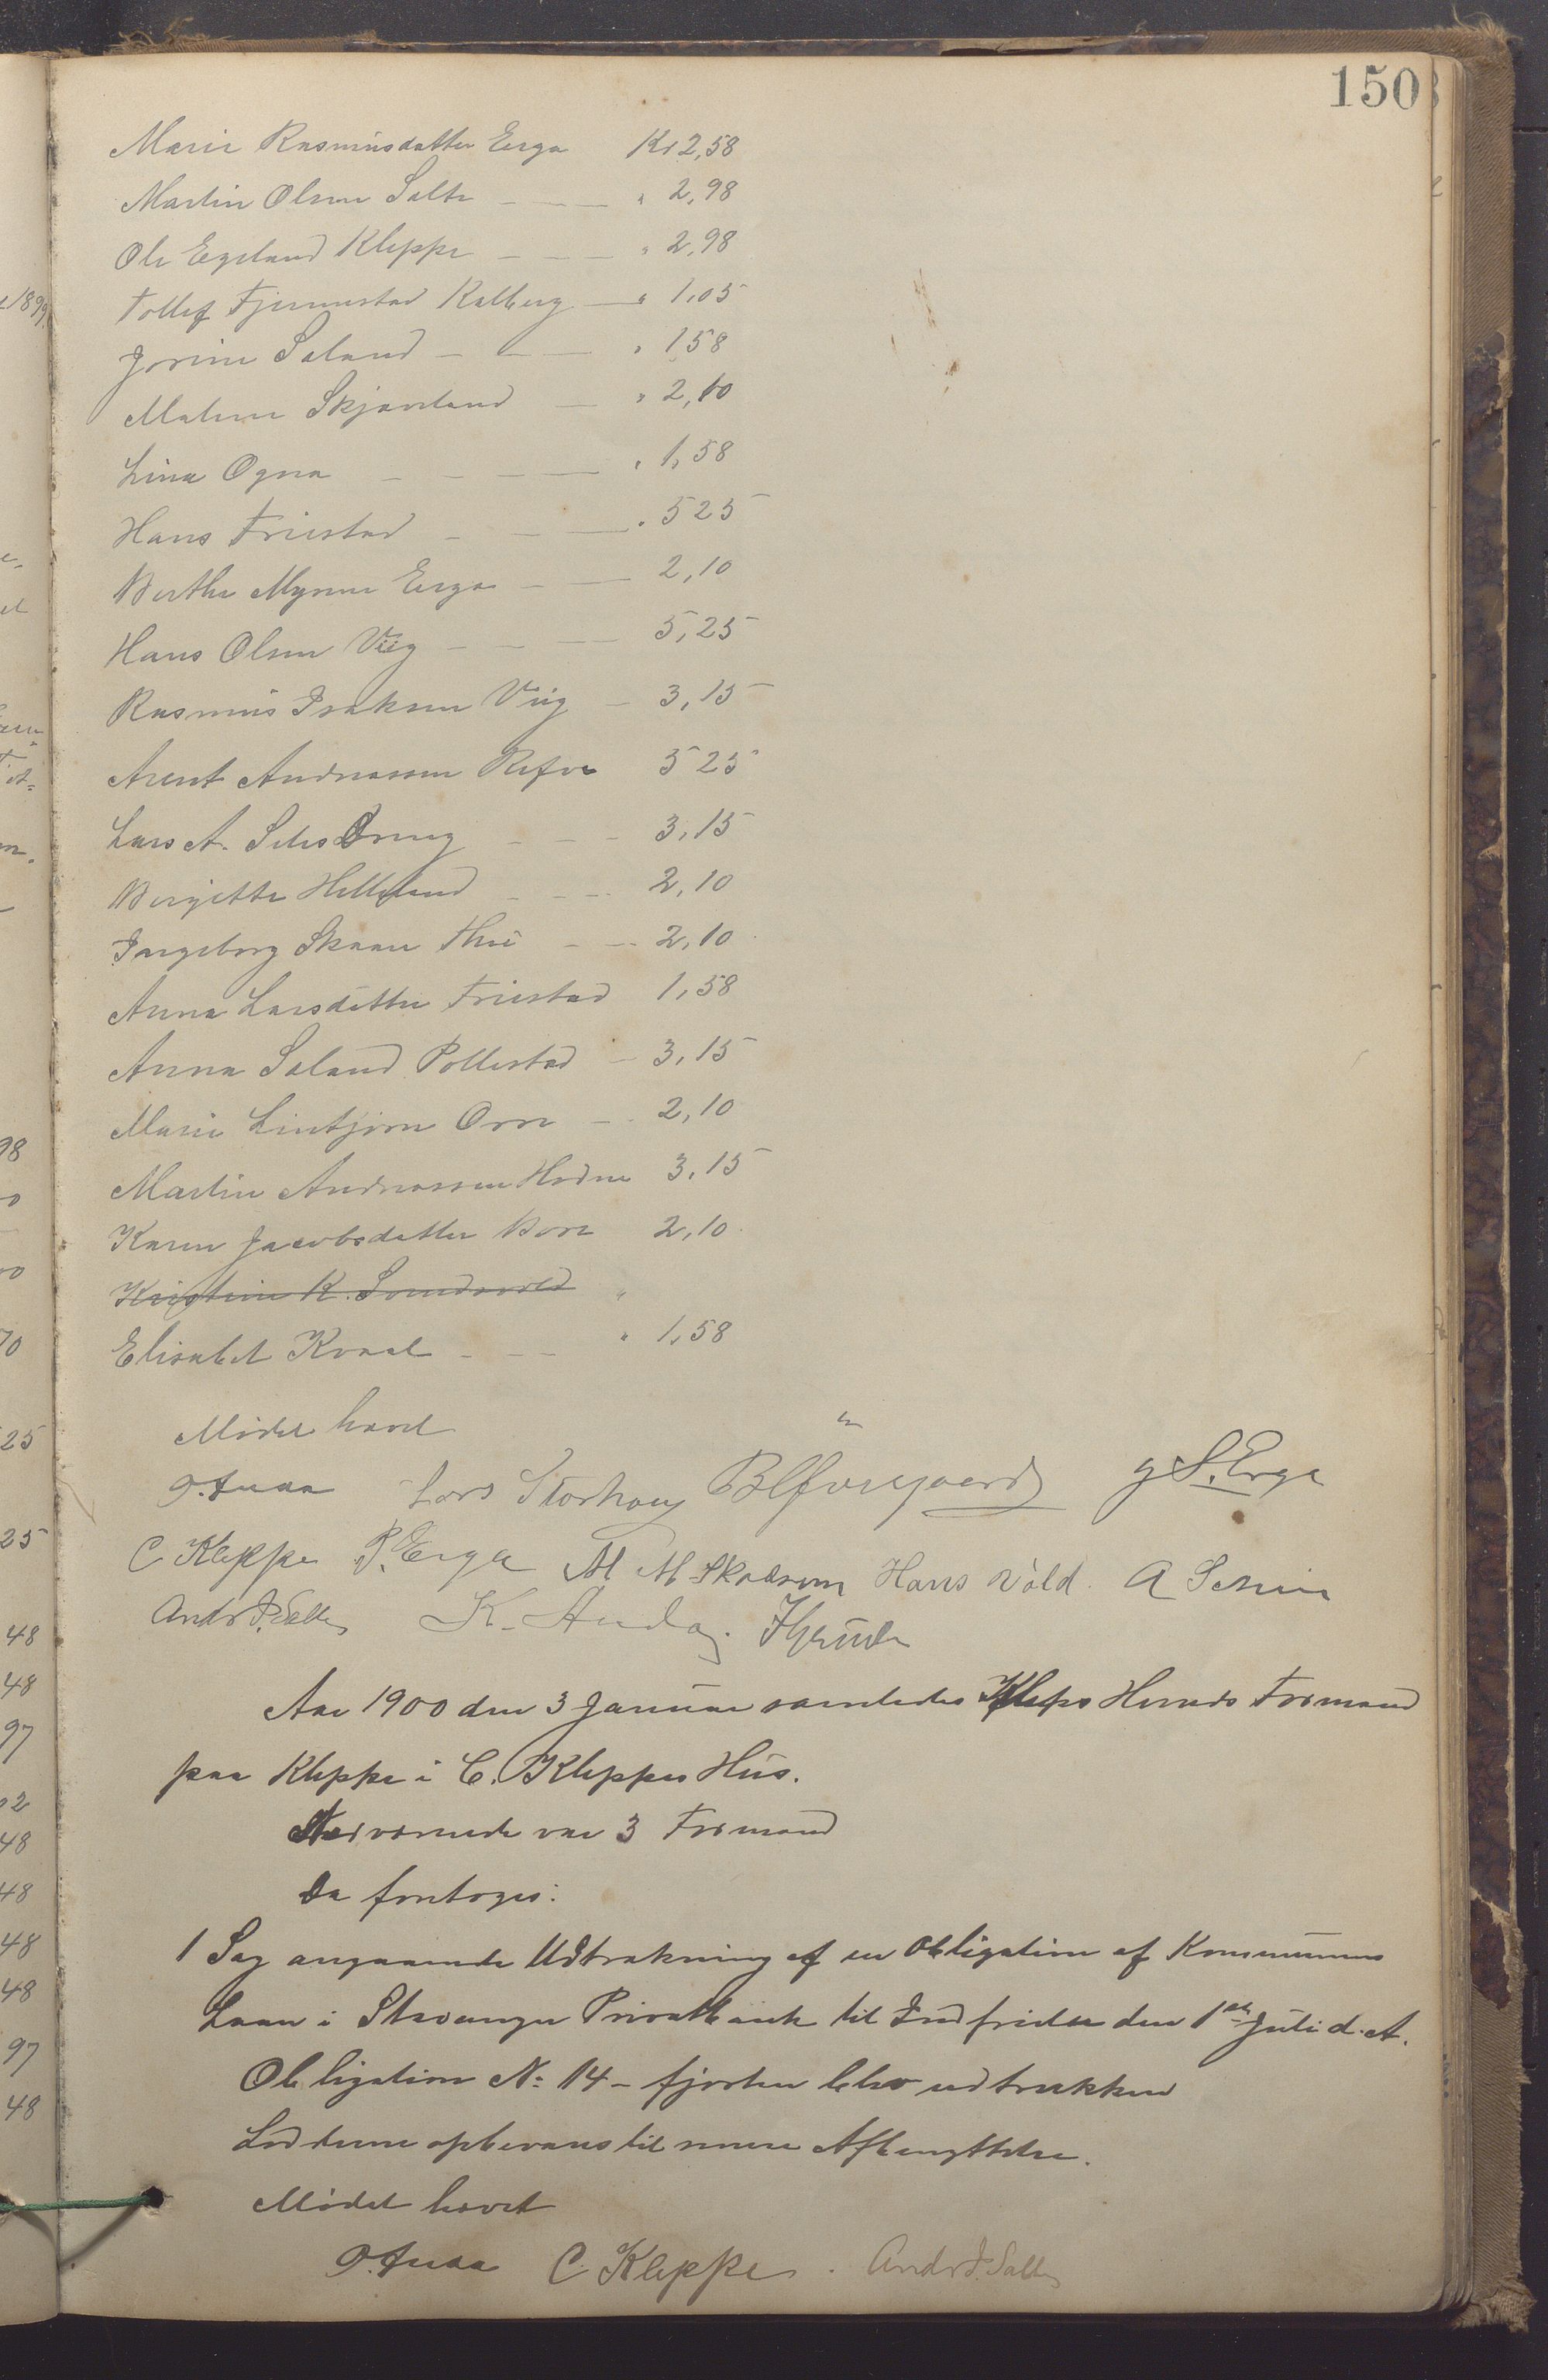 150
Marie Rasmusdatter Erga Kr 2,58
Martin Olsen Salte — — " 2,98
Ole Egeland Kleppe — — " 2,98
Tollef Tjemmstad Kalberg — " 1,05
Jorine Saland — — — " 158
Malene Skjæveland — " 2,10
Lina Ogna — — — — " 1,58
Hans Friestad — — — " 525
Berthe Myrene Erga — — 2,10
Hans Olsen Viig — — — 5,25
Rasmus Isaksen Viig — 3,15
Arent Andreassen Refve 525
Lars A. Sels — — 3,15
Bergitte Helleland — — 2,10
Ingeborg Skaare Thu — — 2,10
Anna Larsdatter Friestad 1,58
Anna Saland Pollestad — 3,15
Marie Lintjørn Orre — 2,10
Martin Andreassen Hodne 3,15
Karen Jacobsdatter Bore 2,10
Kristine K. Somdrvold "
Elisabet Kvaal — — — " 1,58
Mødet hævet
O. Tuaa Lars Storhoug G S. Erga
C Kleppe P. Erga M M Skadsem Hans Vold. A Serine
Andr J. Salte K. Anda.
Aar 1900 den 3 Januar samledes Kleps Herreds Formænd
paa Kleppe i C. Kleppes Hus.
Nærværende var 3 Formænd
Da foretoges:
1 Sag angaaende Udtrækning af en Obligation af Kommunens
Laan i Stavanger Privatbank til Indfrielse den 1ste Juli d. A.
Obligation No 14 – fjorten blev udtrukken
Lodderne opbevares til senere Afbenyttelse.
Mødet hævet
O. Tuaa C. Kleppe. Andr J. Salte